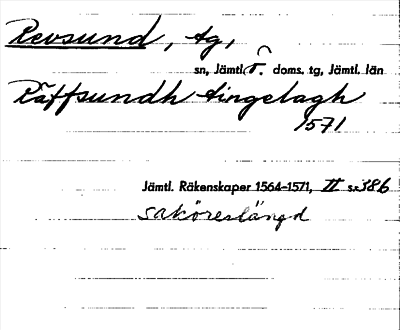 Revsund, tg,
sn, Jämtl. Ö. doms. tg, Jämtl. län
Räffsundh tingelagh
1571
Jämtl. Räkenskaper 1564-1571, II s. 386
saköreslängd